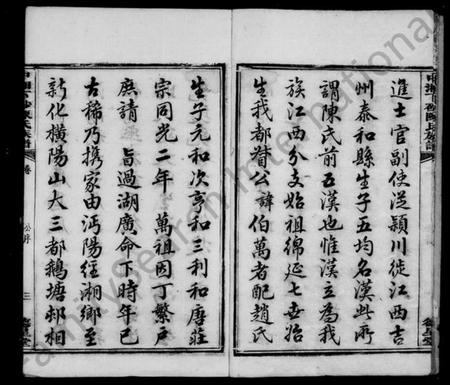 進士官副使從潁川徙江西吉
州泰和縣生子五均名漢此所
謂陳氏前五漢也惟漢立為我
族江西分支始祖綿延七世始
生我都督公諱伯萬者配趙氏
生子元和次亨和三利和唐莊
宗同光二年 萬祖因丁繁戶
庶請 旨過湖廣命下時年已
古稀乃携家由沔陽經湘鄉至
新化橫陽山大三都鵝塘邨相
卷
公序
三